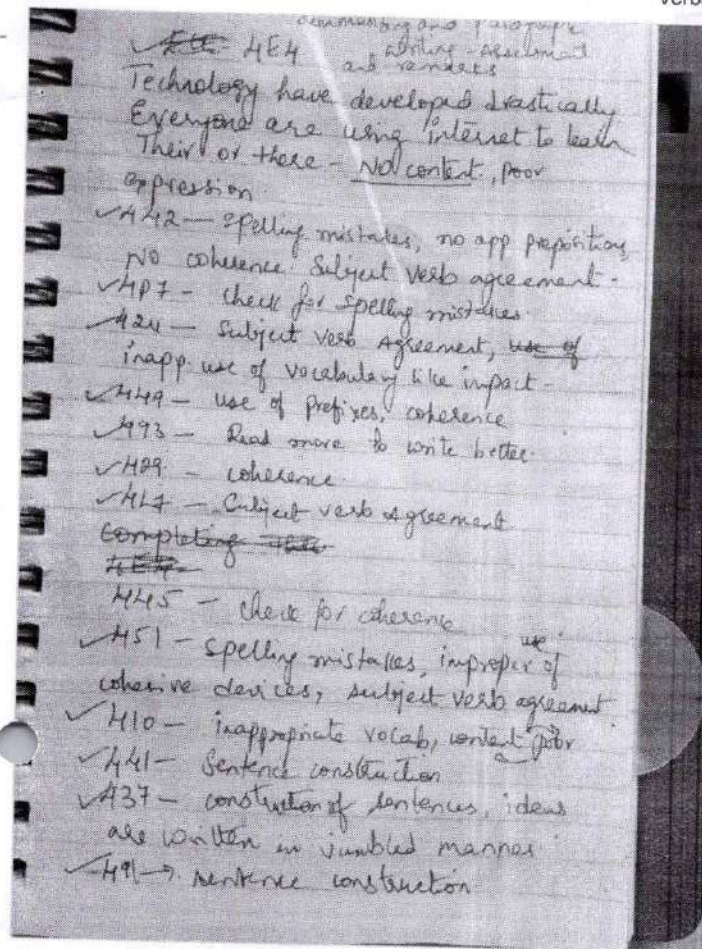 Verb
summarising and paragraph
✓ 4E4 writing - assessment
and remarks
Technology have developed drastically
Everyone are using internet to learn
Their or there - No content, poor
expression.
✓442 — spelling mistakes, no app prepositions,
No coherence. Subject verb agreement.
✓4P7 - check for spelling mistakes.
✓424 — Subject Verb Agreement, use of
inapp. use of vocabulary like impact -
✓449 - use of prefixes, coherence
✓493 — Read more to write better.
✓429 - coherence.
✓4L7 - Subject verb agreement
Completing
4E4
445 - check for coherence
✓451 - spelling mistakes, improper use of
cohesive devices, subject verb agreement
✓410 - inappropriate vocab, content poor
✓441 - Sentence construction
✓437 - construction of sentences, ideas
are written in jumbled manner
✓491 → sentence construction